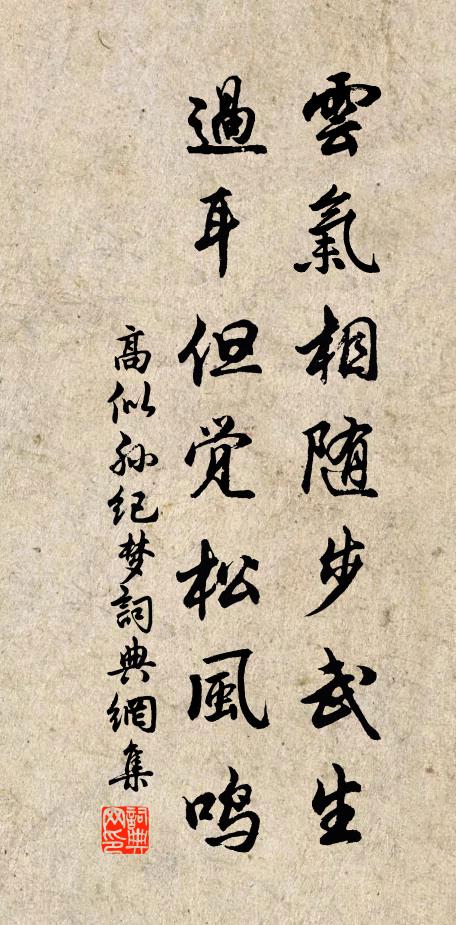 雲氣相随步武生
過耳但觉松風鸣
高似孙纪梦詞典網集
詞典网印